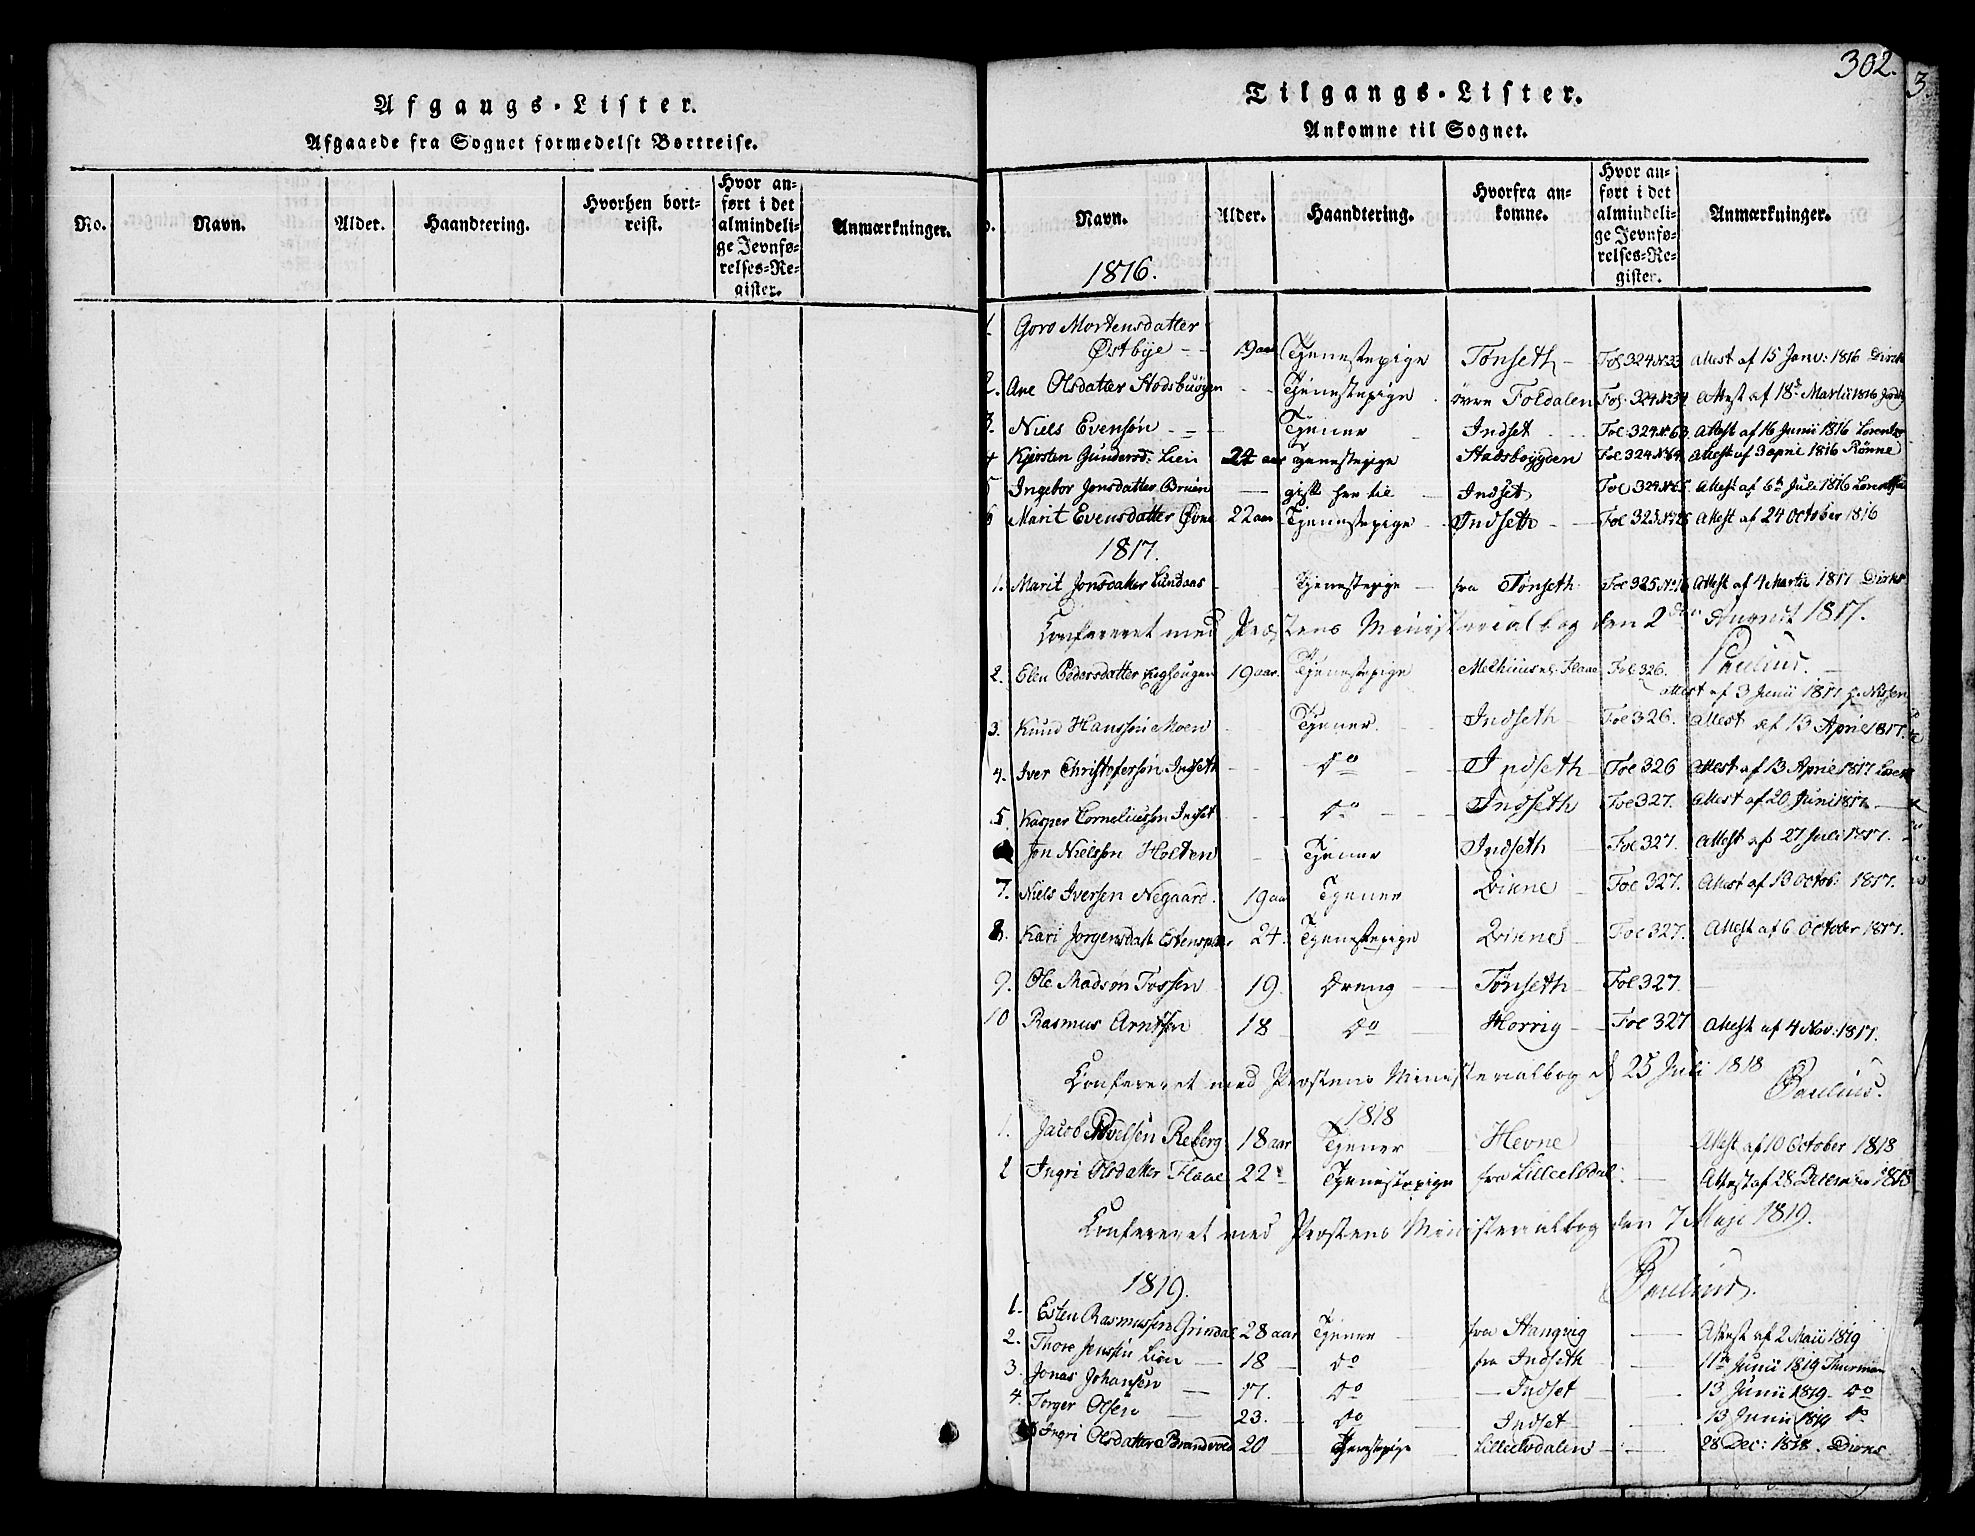 Afgangs-Lister.
Afgaaede fra Sognet formedelst Bortreise.
No. Navn. Alder. Haandtering. Hvorhen bortreist. Hvor anført i det almindelige Jevnførelses-Register. Anmærkninger.
302.
3
Tilgangs-Lister.
Ankomne til Sognet.
Navn. Alder. Haandtering. Hvorfra ankomne. Hvor anført i det almindelige Jevnførelses-Register. Anmærkninger.
1816.
1. Goro Mortensdatter
Østbye - - 19 aar Tjenestepige Tønseth - Fol 324 No 33 Attest af 15 Janv: 1816
2. Ane Olsdatter - - Tjenestepige øvre Foldalen Fol. 324 No 34 Attest af 18 Martii 1816
3. Niels Evensøn - - Tjener Indset Fol: 324 No 63. Attest af 16 Junii 1816
4 Kjersten Gundersd: Lien 24 aar Tjenestepige Stadsboygden Fol 324 No 64 Attest af 3 april 1816 Rønne
5 Ingebor Jonsdatter Bruen - gift her til Indset Fol 324 No 65 Attest af 6te Juli 1816
6 Marit Evensdatter Øvne 22 aar Tjenestepige Indseth Fol 325 Attest af 24 October 1816
1817.
1. Marit Jonsdatter Lundaas Tjenestepige fra Tønseth Fol 325 No 16 Attest af 4 Martii 1817
Confereret med Prostens Ministerialbog den 2den August 1817.
Paulius.
2. Elen Pedersdatter 19 aar. Tjenestepige Melhuus Fol 326.
attest af 3 Junii 1817 Nissen
3. Knud Hanssøn Moen Tjener Indseth Fol 326. Attest af 13 April 1817.
4. Iver Christofersøn Indseth Do Indseth Fol 326 Attest af 13 April 1817
5. Kasper Corneliussen Indset Do Indseth Fol 327. Attest af 20 Juni 1817
Jon Nielssøn Holten Tjener Indseth Fol 327. Attest af 27 Juli 1817.
7. Niels Iversen Negaard. 19 aar Tjener Qvikne Fol 327. Attest af 13 Octob: 1817.
8. Kari Jørgensdatt 24. Tjenestepige Qviknes Fol 327. Attest af 6 October 1817.
9. Ole Madsøn Tossen 19. Dreng Tønseth Fol 327.
10 Rasmus Arntsen 18 Do Horrig Fol 327 Attest af 4 Nov: 1817.
Confereret med Prostens Ministerialbog d 25 Juli 1818
Paulius.
1818
1. Jacob Povelsen Reberg 18 aar Tjener Hevne Attest af 10 October 1818
2 Ingri Olsdatter Flaae 22 Tjenestepige fra Lilleelvdal Attest af 28 December 1818
Confereret med Prostens Ministerialbog den 7 Maji 1819.
Paulius.
1819.
1. Esten Rasmussen Grindal 28 aar Tjener fra Attest af 2 Maii 1819
2. Thore Jenssen Lien - 18 - Do fra Indseth 11te Junii 1819 Thurman
3. Jonas Johansen - 17. Do - Indset 13 Junii 1819 - Do
4. Torger Olsen - 23. Do Indset 13 Junii 1819 Do
Ingri Olsdatter Brandvold 20 Tjenestepige Lilleelvdalen 28 Dec: 1818. Dirks